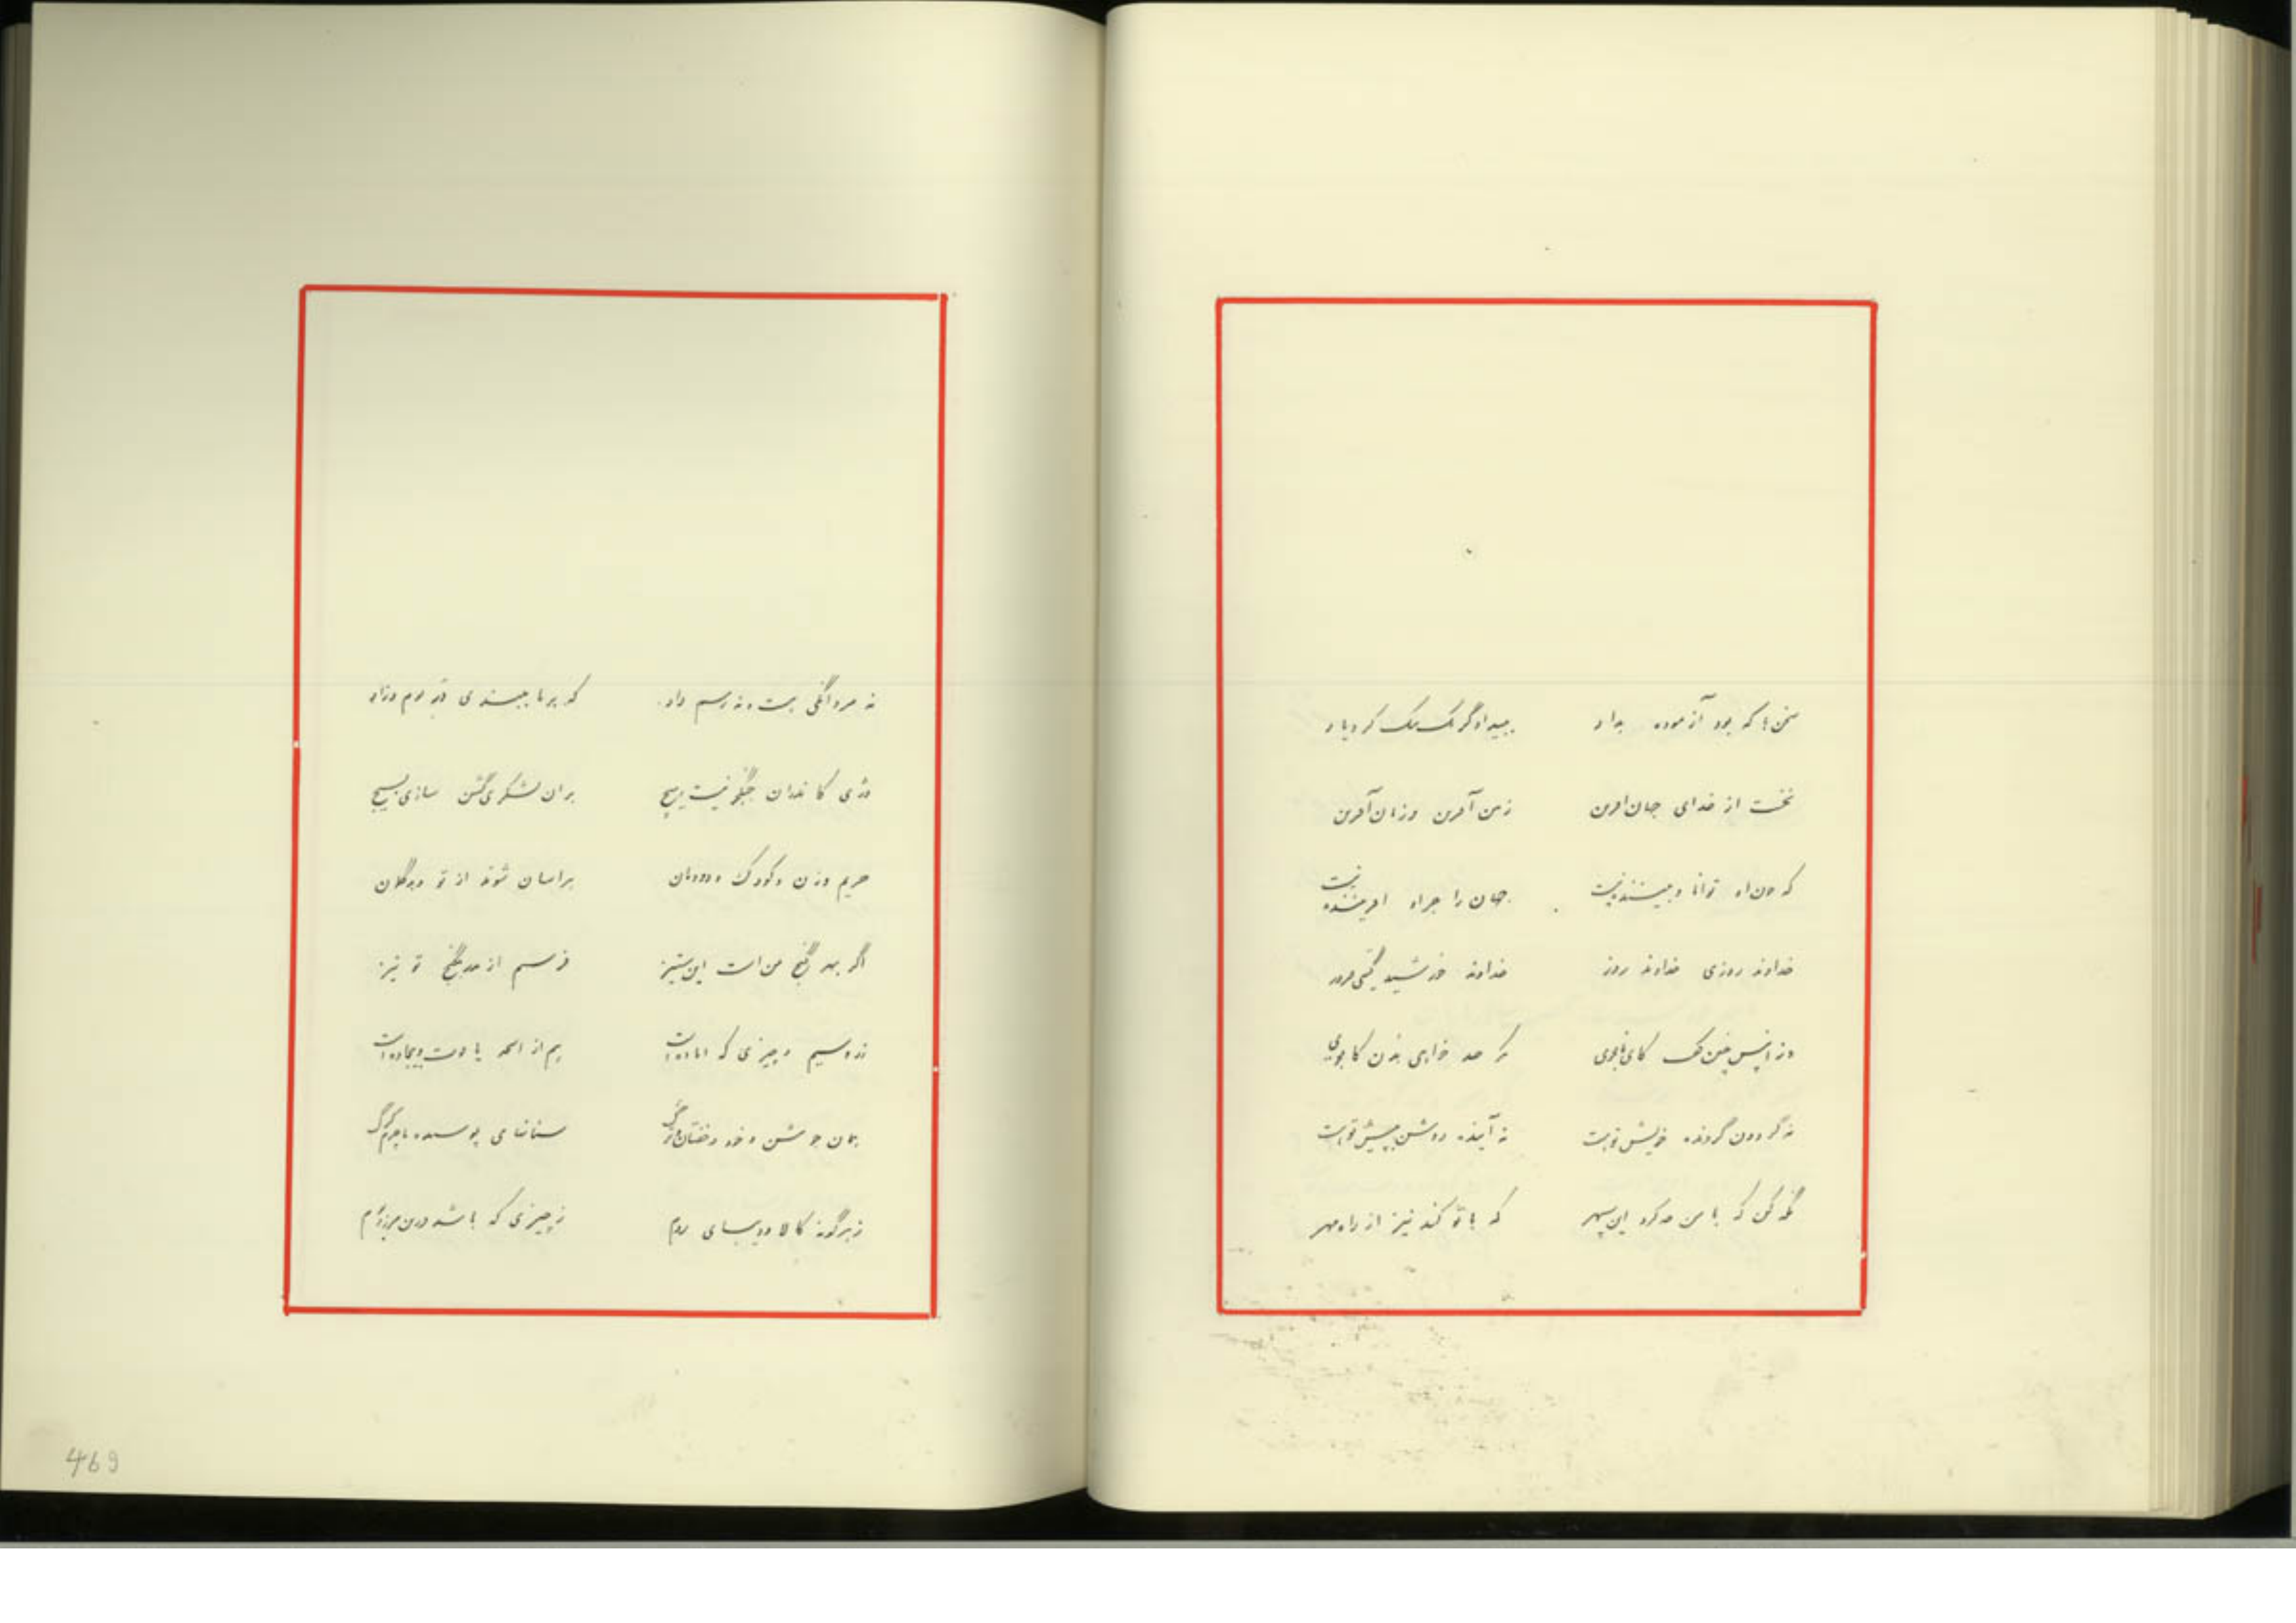 سخن‌ها که بود آزموده بداد    ببیدادگر یک بیک کرد یاد
نخست از خدای جهان‌آفرین    زمین آفرین و زمان آفرین
که چون او توانا و بیننده نیست    جهان را جز او آفریننده نیست
خداوند روزی خداوند روز    خداوند خورشید گیتی‌فروز
وز آنپس چنین گفت کای‌نامجوی    چه خواهی بدن
نه گردون گردنده خویش تو است    نه آینده روشن بپیش تو است
نگه کن که با من چه کرد این سپهر    که با تو کند نیز از راه مهر
نه مردانگی هست و نه رسم داد    که بر ما پسندی
دژی کاندران جنگجو نیست هیچ    بران لشکری گشن سازی بسیچ
حریم و زن و کودک و دودمان    هراسان شوند از تو
اگر بهر گنج من است این ستیز    فرستم از گنج تو نیز
زر و سیم و چیزی که آماده است    هم از اسلحه یا
همان جوشن و خود و خفتان و ترگ    سنانهای
ز هرگونه کالا و دیبای روم    ز چیزی که باشد درین مرز و بوم
469